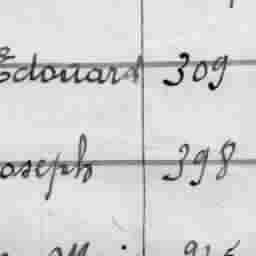 Edouard 309
oseph 398